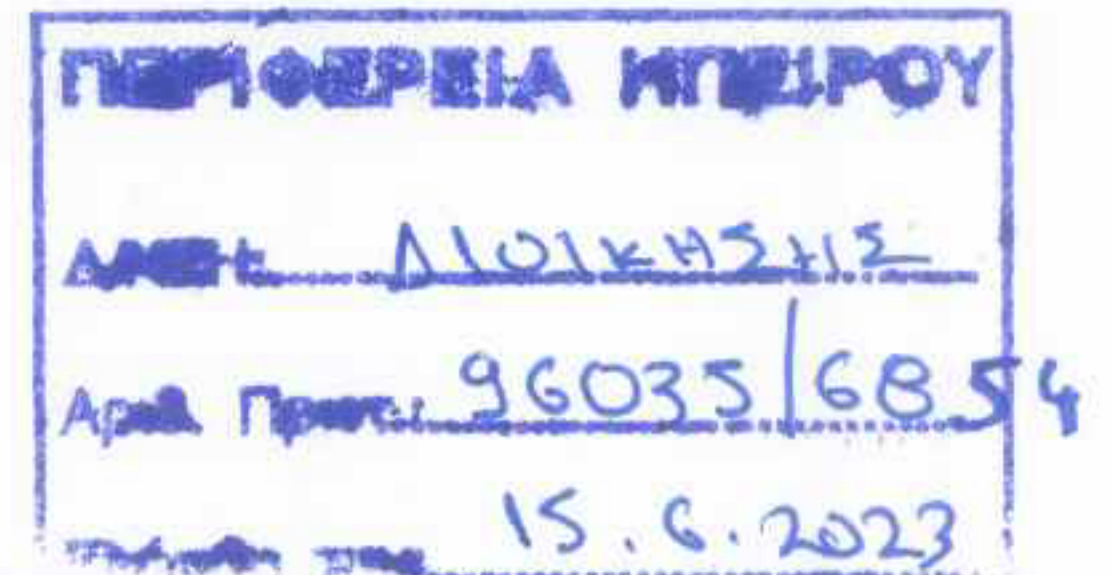 ΠΕΡΙΦΕΡΕΙΑ ΗΠΕΙΡΟΥ
Δ/ΝΣΗ ΔΙΟΙΚΗΣΗΣ
Αριθ. Πρωτ.: 96035/6854
15.6.2023